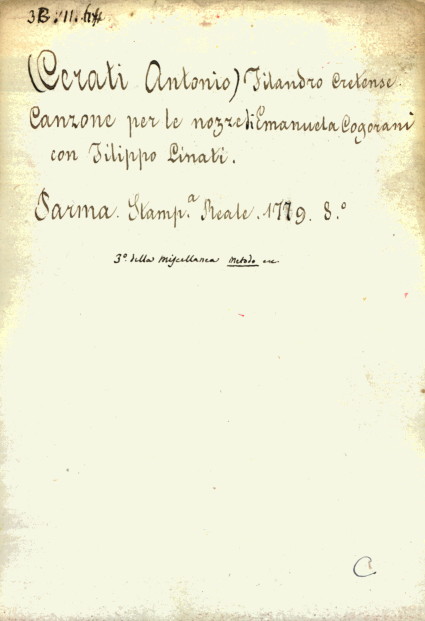 (Cerati Antonio) Filandro Cretense.
Canzone per le nozze di Emanuela Cogorani
con Filippo Linati.
Parma. Stamp.a Reale. 1779. 8.o
3o della Miscellanea Metodo ec.
C